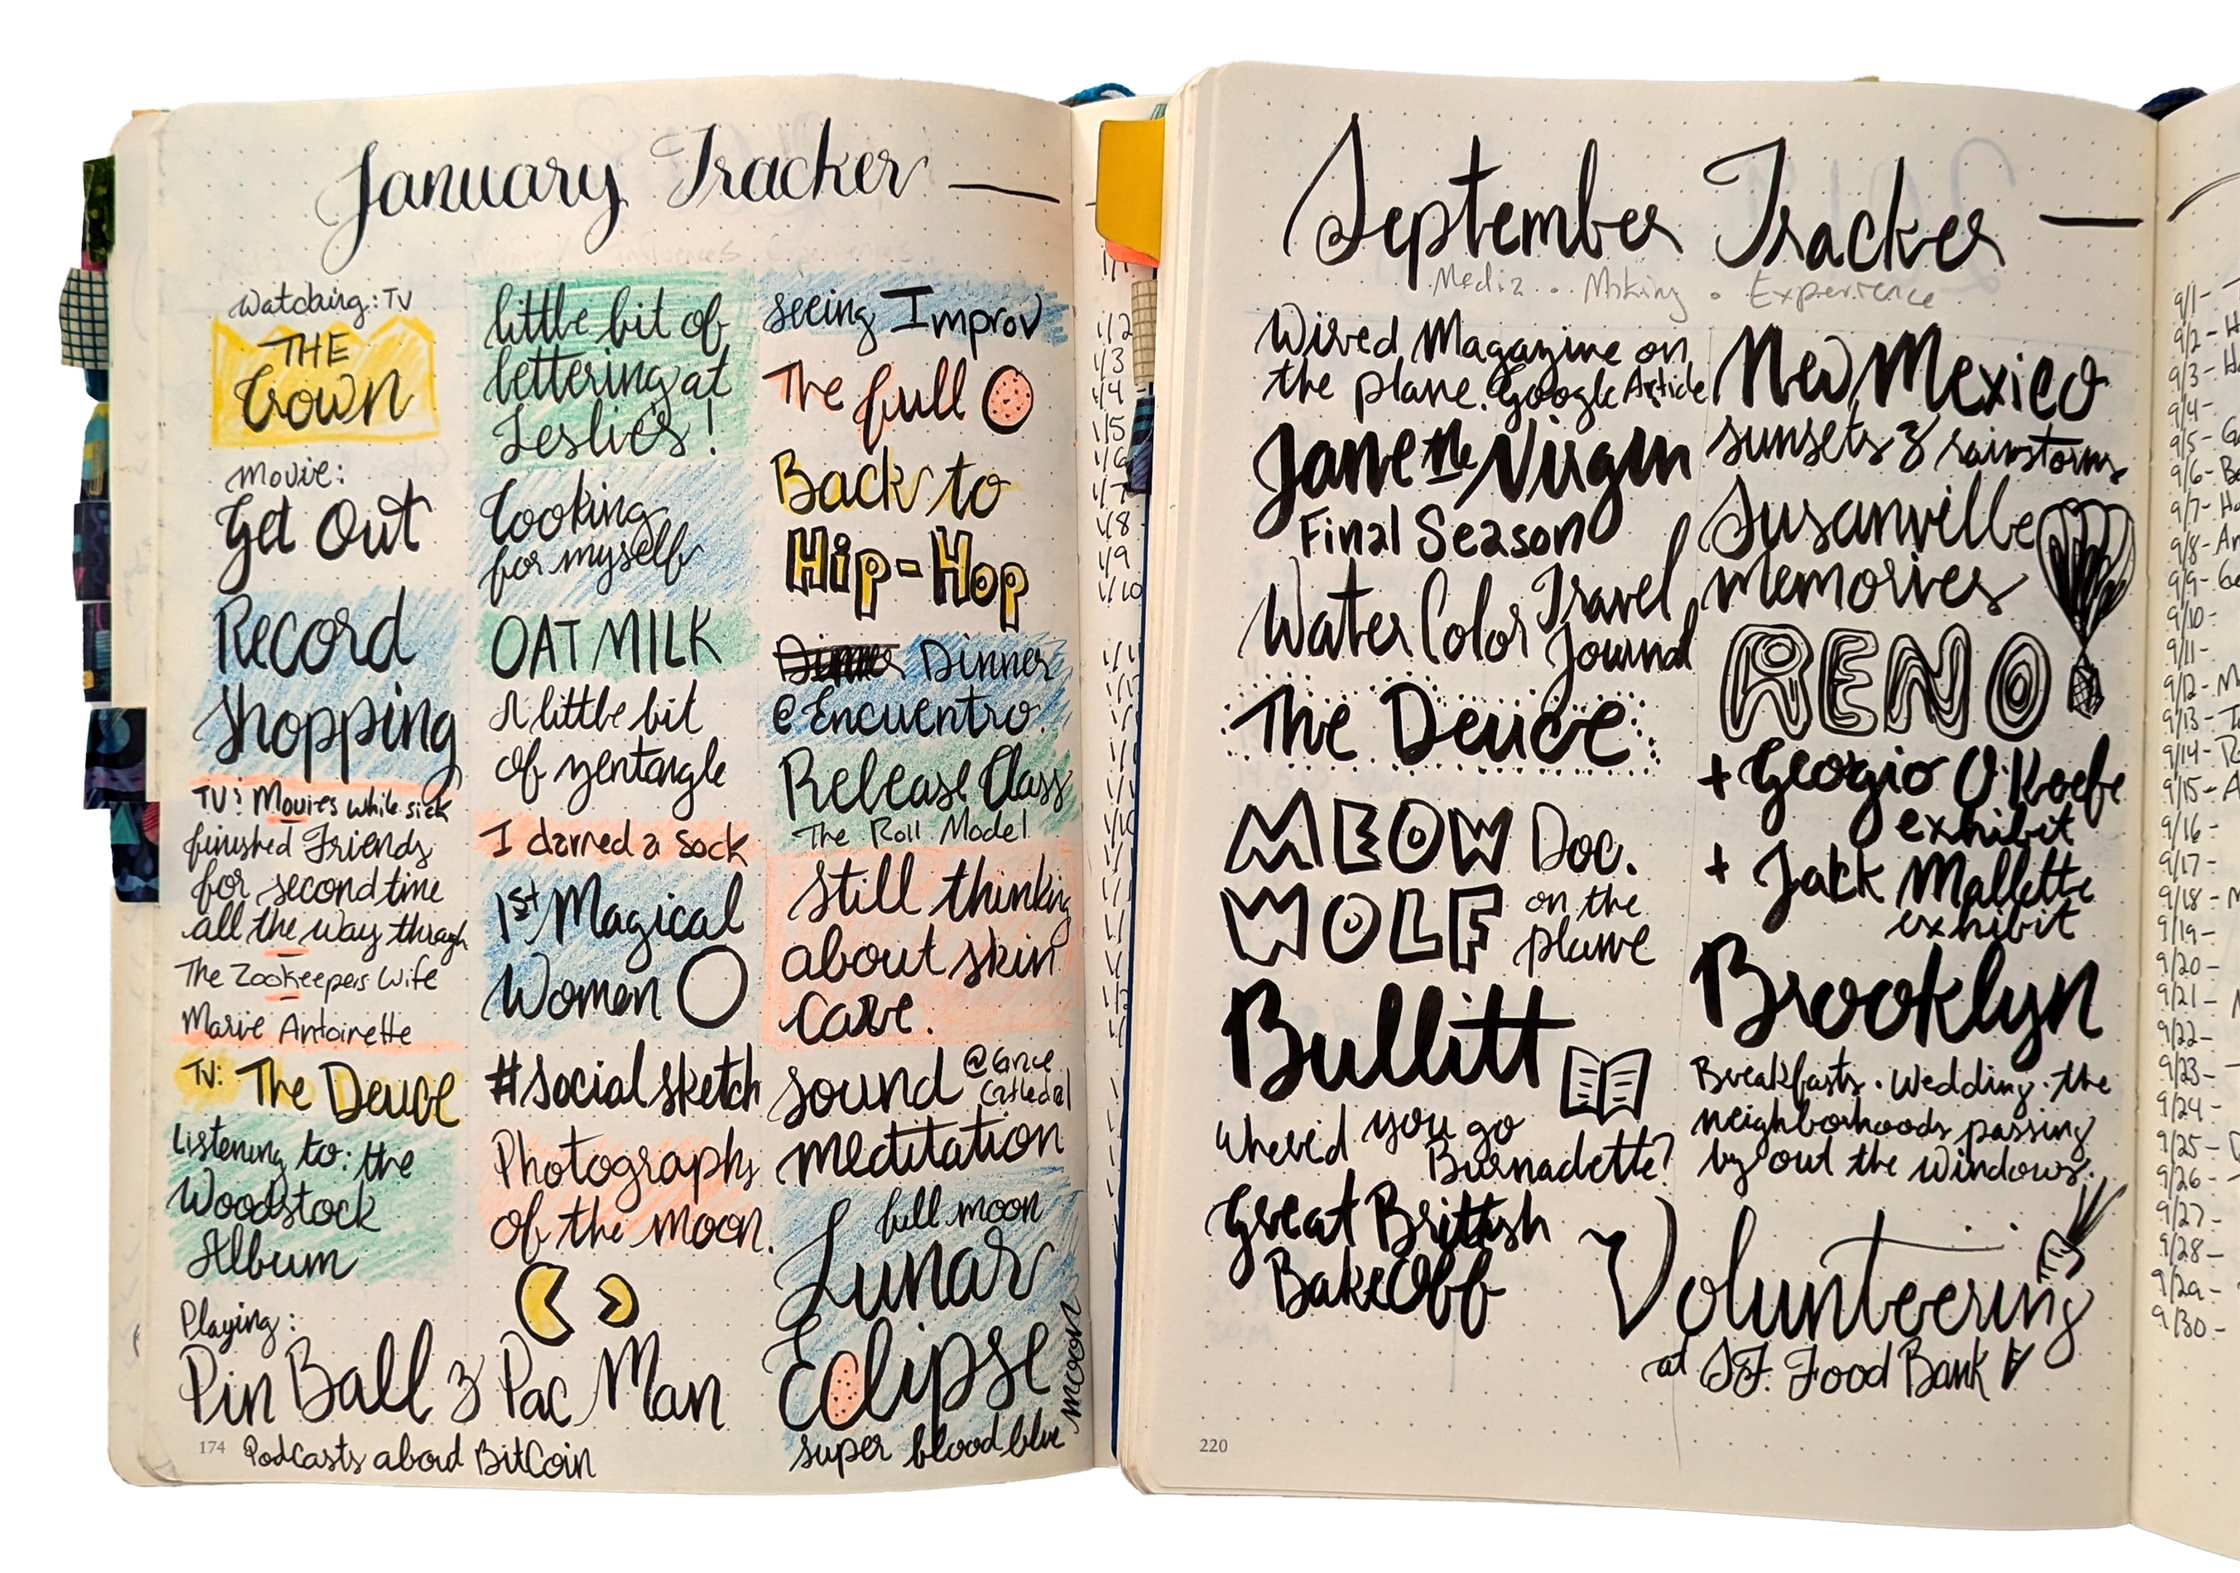 January Tracker —
Watching: TV
THE
Crown
Movie:
Get Out
Record
Shopping
TV: Movies while sick
finished Friends
for second time
all the way through
The Zookeepers Wife
Marie Antoinette
TV: The Deuce
Listening to: the
Woodstock
Album
Playing:
Pin Ball & Pac Man
Podcasts about BitCoin
174
little bit of
lettering at
Leslie's!
Cooking
for myself
OAT MILK
A little bit
of zentangle
I darned a sock
1st Magical
Women
#socialsketch
Photographs
of the moon.
seeing Improv
The full
Back to
Hip-Hop
Dinner Dinner
@ Encuentro
Release Class
The Roll Model
Still thinking
about skin
care.
sound @ Grace
Cathedral
meditation
full moon
Lunar
Eclipse
super blood blue
moon
1/2
1/3
1/4
1/5
1/6
1/7
1/8
1/9
1/10
September Tracker —
Media . Making . Experience
Wired Magazine on
the plane. Google Article
Jane the Virgin
Final Season
Water Color Travel
Journal
The Deuce
MEOW Doc.
WOLF on the
plane
Bullitt
Where'd you go
Bernadette?
Great Brittish
BakeOff
220
New Mexico
sunsets & rainstorms
Susanville
memories
RENO
+ Georgio O'Keefe
exhibit
+ Jack Mallette
exhibit
Brooklyn
Breakfasts . Wedding . the
neighborhoods passing
by out the windows.
Volunteering
at S.F. Food Bank
9/1 -
9/2 -
9/3 -
9/4 -
9/5 -
9/6 -
9/7 -
9/8 -
9/9 -
9/10 -
9/11 -
9/12 -
9/13 -
9/14 -
9/15 -
9/16 -
9/17 -
9/18 -
9/19 -
9/20 -
9/21 -
9/22 -
9/23 -
9/24 -
9/25 -
9/26 -
9/27 -
9/28 -
9/29 -
9/30 -